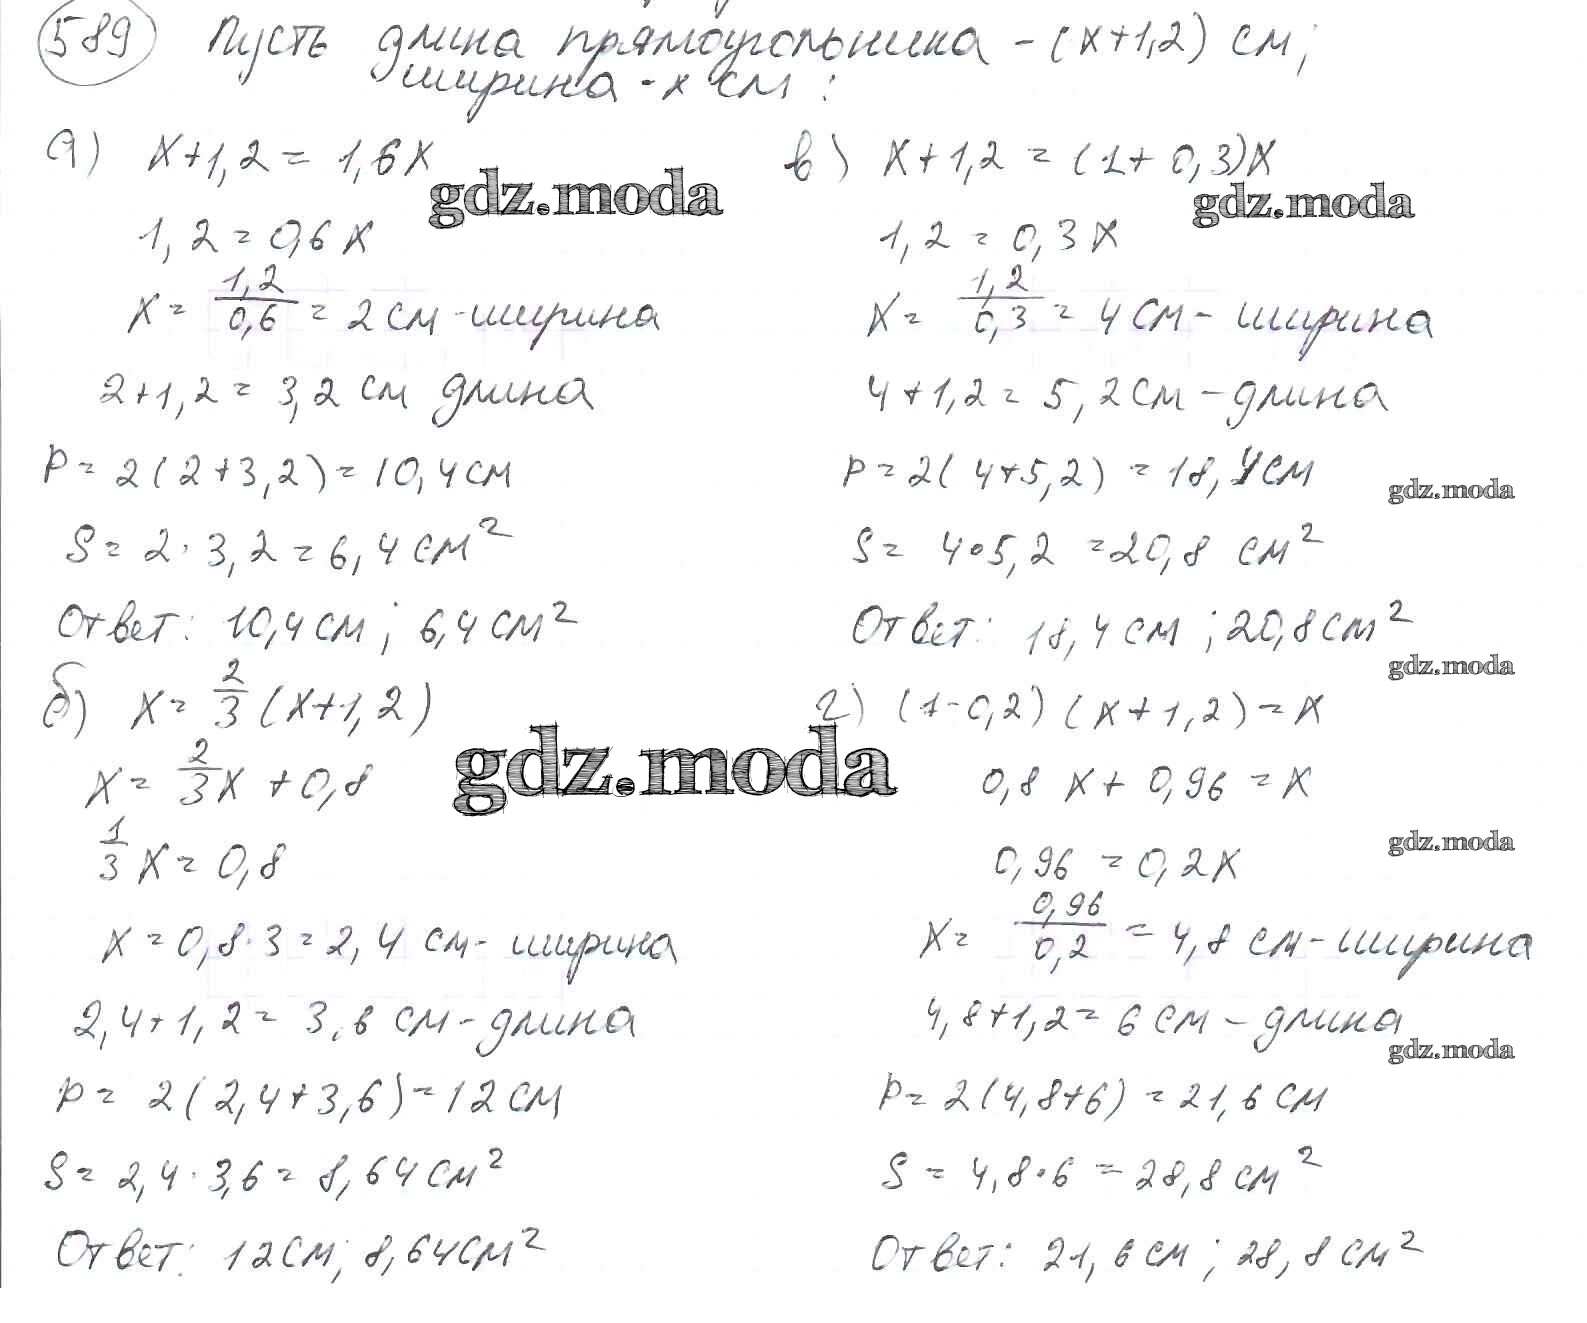 589 Пусть длина прямоугольника - (x+1,2) см;
ширина - x см:
а) x+1,2 = 1,6x
gdz.moda
1,2 = 0,6x
x = 1,2/0,6 = 2 см - ширина
2+1,2 = 3,2 см длина
P = 2(2+3,2) = 10,4 см
S = 2·3,2 = 6,4 см²
Ответ: 10,4 см; 6,4 см²
б) x = 2/3 (x+1,2)
gdz.moda
x = 2/3 x + 0,8
1/3 x = 0,8
x = 0,8·3 = 2,4 см - ширина
2,4+1,2 = 3,6 см - длина
P = 2(2,4+3,6) = 12 см
S = 2,4·3,6 = 8,64 см²
Ответ: 12 см; 8,64 см²
в) x+1,2 = (1+0,3)x
gdz.moda
1,2 = 0,3x
x = 1,2/0,3 = 4 см - ширина
4+1,2 = 5,2 см - длина
P = 2(4+5,2) = 18,4 см
gdz.moda
S = 4·5,2 = 20,8 см²
Ответ: 18,4 см; 20,8 см²
gdz.moda
г) (1-0,2)(x+1,2) = x
0,8x + 0,96 = x
gdz.moda
0,96 = 0,2x
x = 0,96/0,2 = 4,8 см - ширина
4,8+1,2 = 6 см - длина
gdz.moda
P = 2(4,8+6) = 21,6 см
S = 4,8·6 = 28,8 см²
Ответ: 21,6 см; 28,8 см²